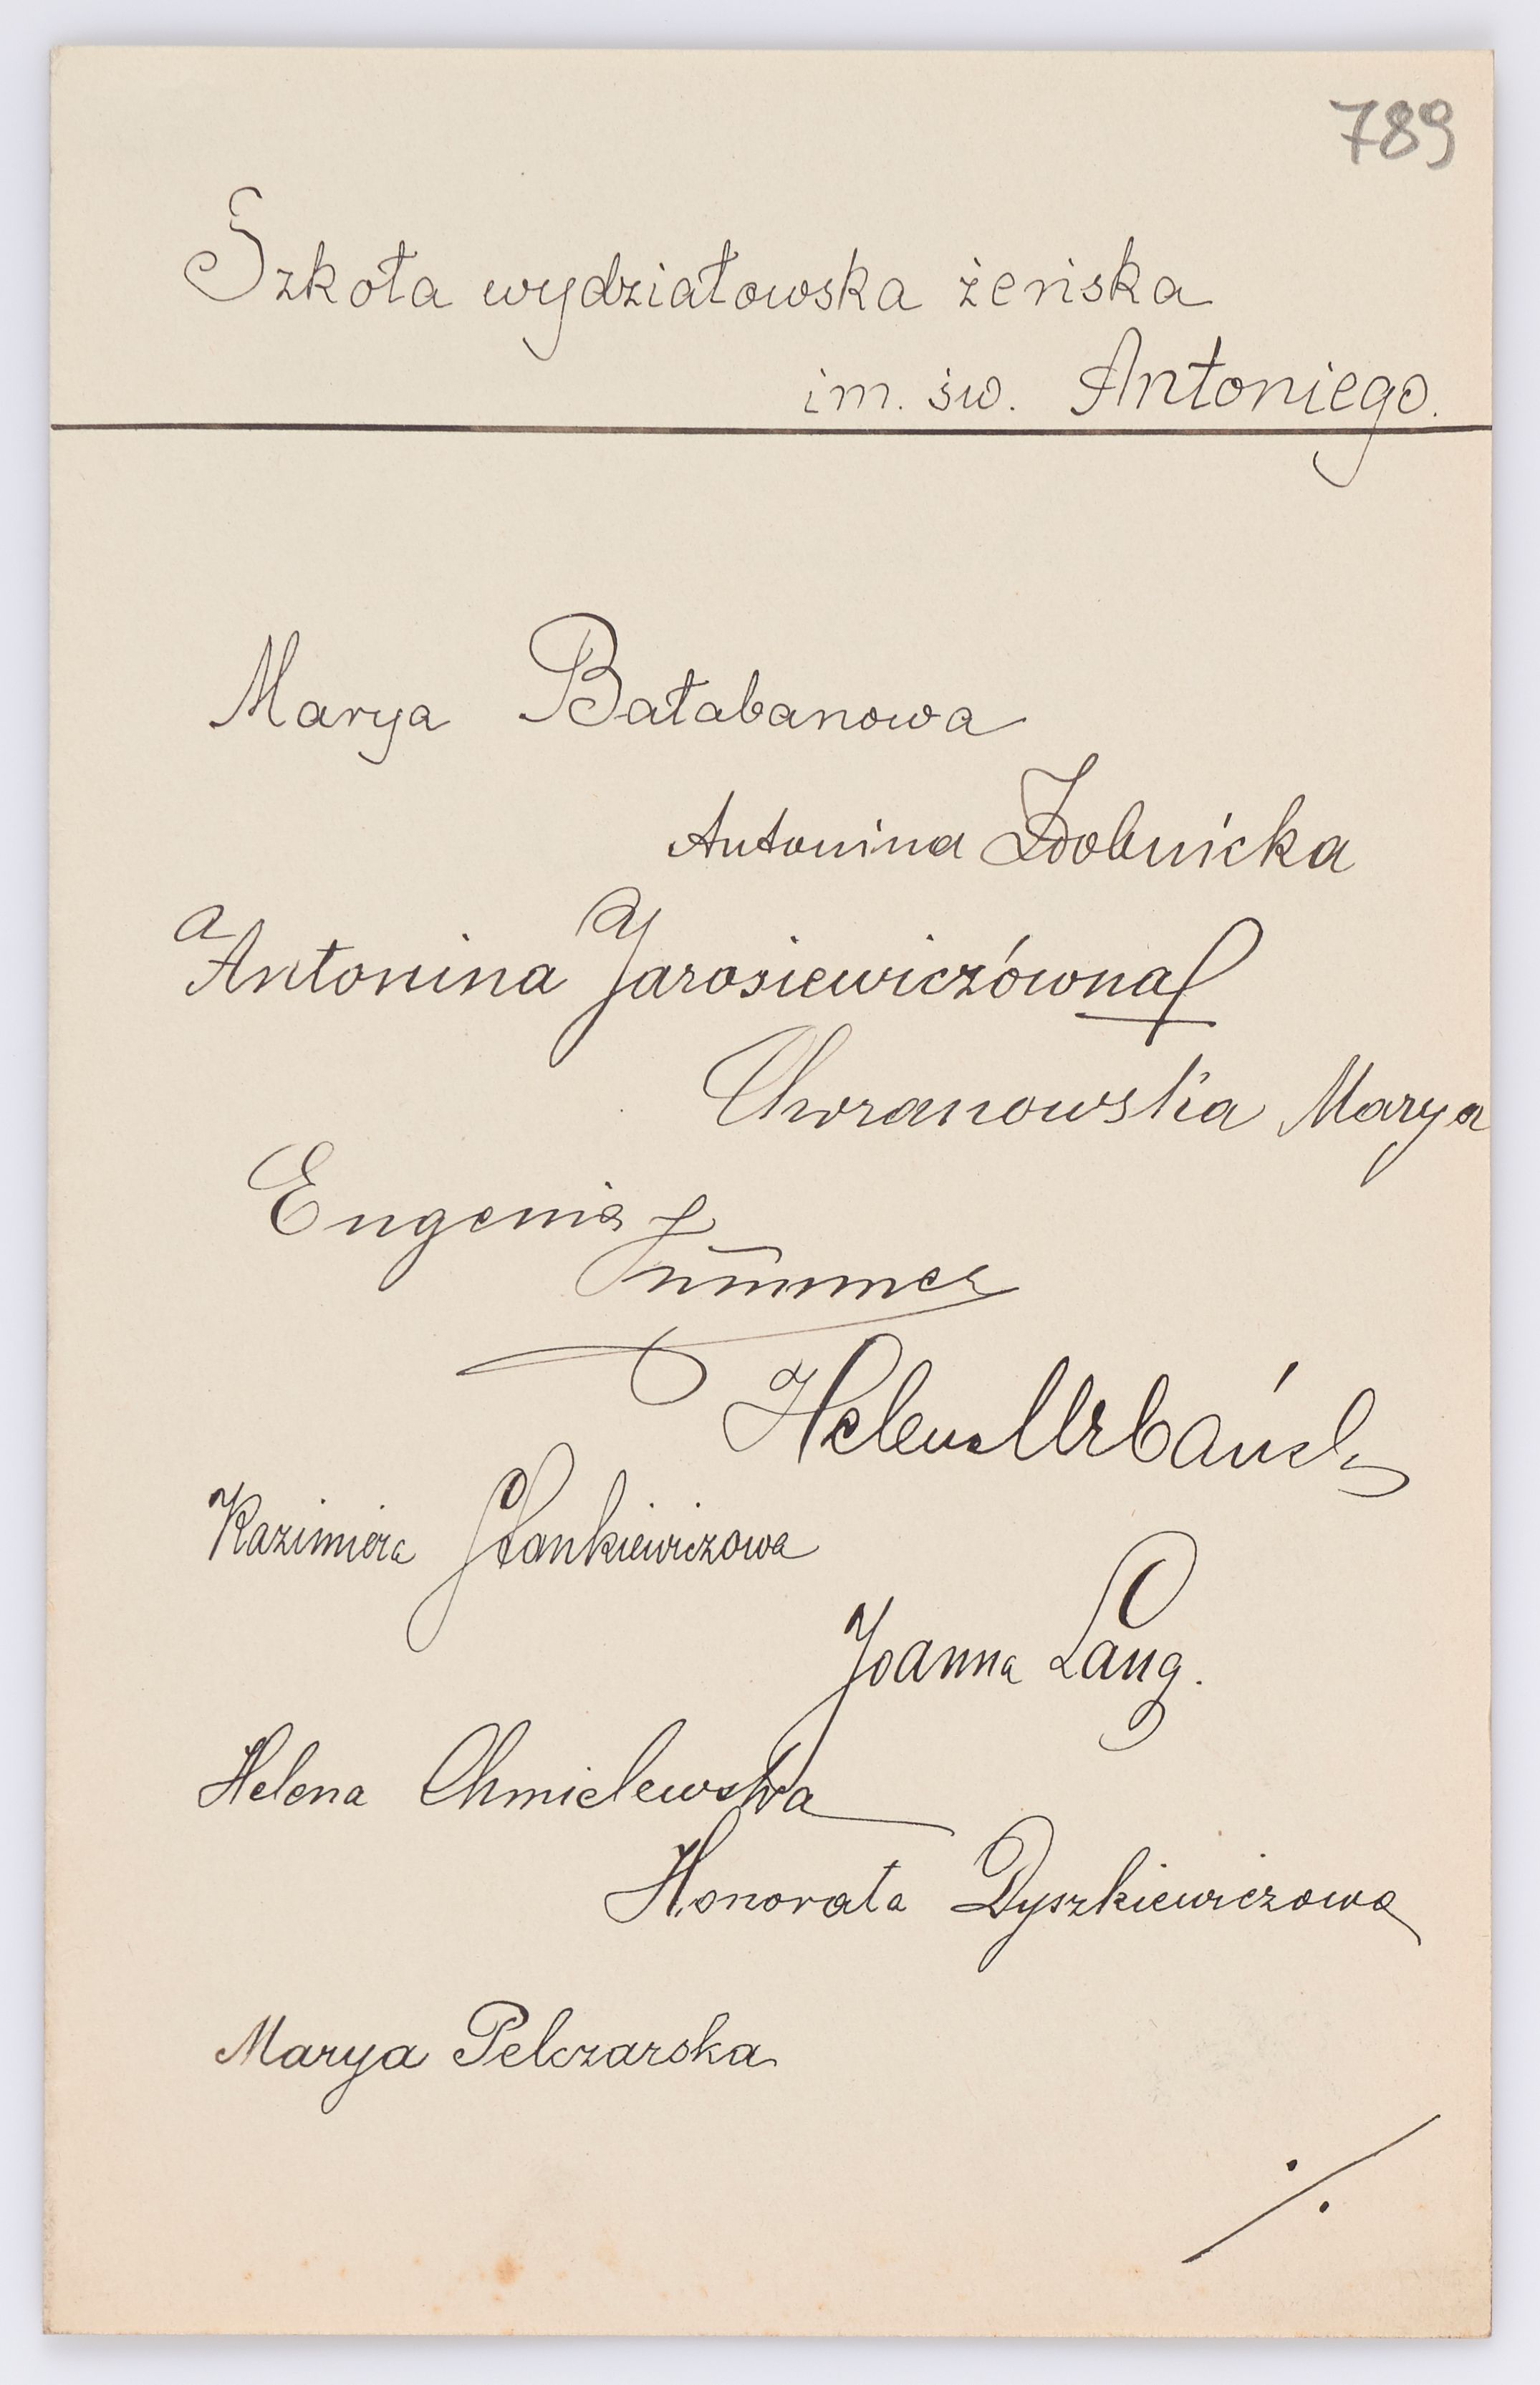 789
Szkoła wydziałowska żeńska
im. św. Antoniego.
Marya Bałabanowa
Antonina Zdobnicka
Antonina Jarosiewiczówna
Chvranowska Marya
Eugenia
Helena
Kazimiera Stankiewiczowa
Joanna Lang.
Helena Chmielewska
Honorata Dyszkiewiczowa
Marya Pelczarska
./.